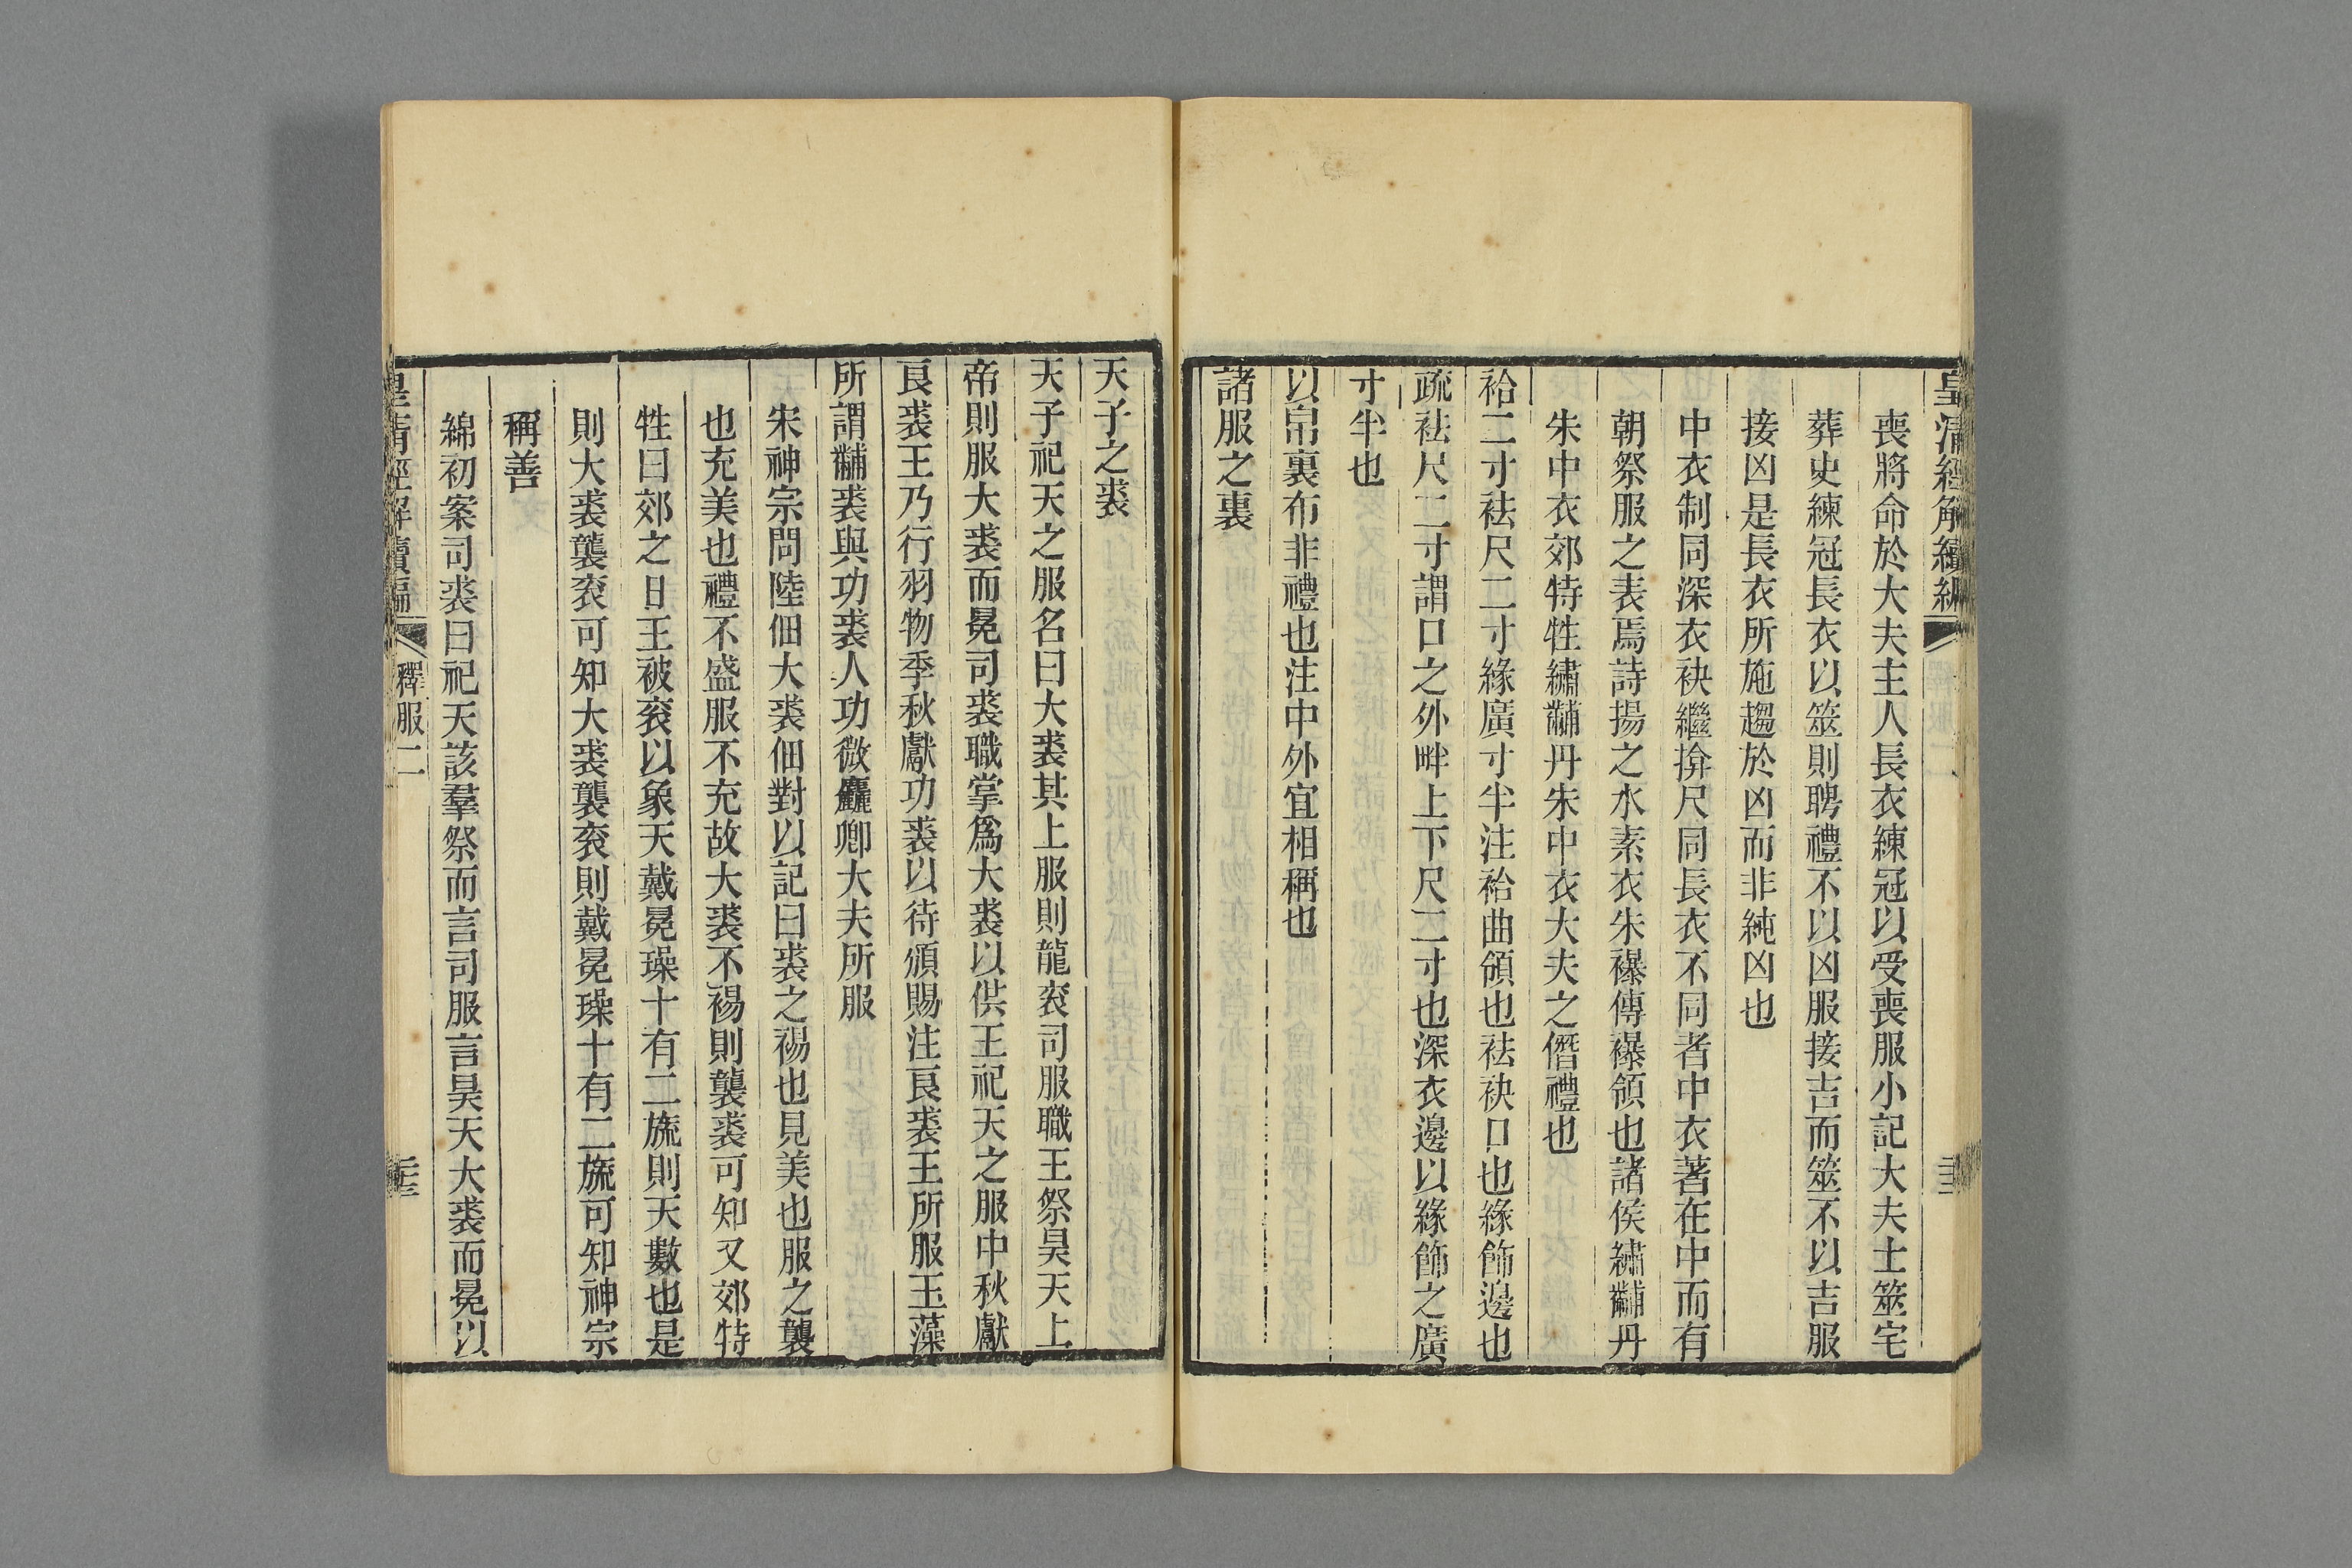 皇清經解續編
喪將命於大夫主人長衣練冠以受喪服小記大夫士筮宅
葬史練冠長衣以筮則聘禮不以凶服接吉而筮不以吉服
接凶是長衣所施趨於凶而非純凶也
中衣制同深衣袂繼揜尺同長衣不同者中衣著在中而有
朝祭服之表焉詩揚之水素衣朱襮傳襮領也諸侯繡黼丹
朱中衣郊特牲繡黼丹朱中衣大夫之僭禮也
袷二寸袪尺二寸緣廣寸半注袷曲領也袪袂口也緣飾邊也
疏袪尺二寸謂口之外畔上下尺二寸也深衣邊以緣飾之廣
寸半也
以帛裏布非禮也注中外宜相稱也
諸服之裏
天子之裘
天子祀天之服名曰大裘其上服則龍袞司服職王祭昊天上
帝則服大裘而冕司裘職掌爲大裘以供王祀天之服中秋獻
良裘王乃行羽物季秋獻功裘以待頒賜注良裘王所服玉藻
所謂黼裘與功裘人功微麤卿大夫所服
宋神宗問陸佃大裘佃對以記曰裘之裼也見美也服之襲
也充美也禮不盛服不充故大裘不裼則襲裘可知又郊特
牲曰郊之日王被袞以象天戴冕璪十有二旒則天數也是
則大裘襲袞可知大裘襲袞則戴冕璪十有二旒可知神宗
稱善
綿初案司裘曰祀天該羣祭而言司服言昊天大裘而冕以
皇清經解續編
釋服二